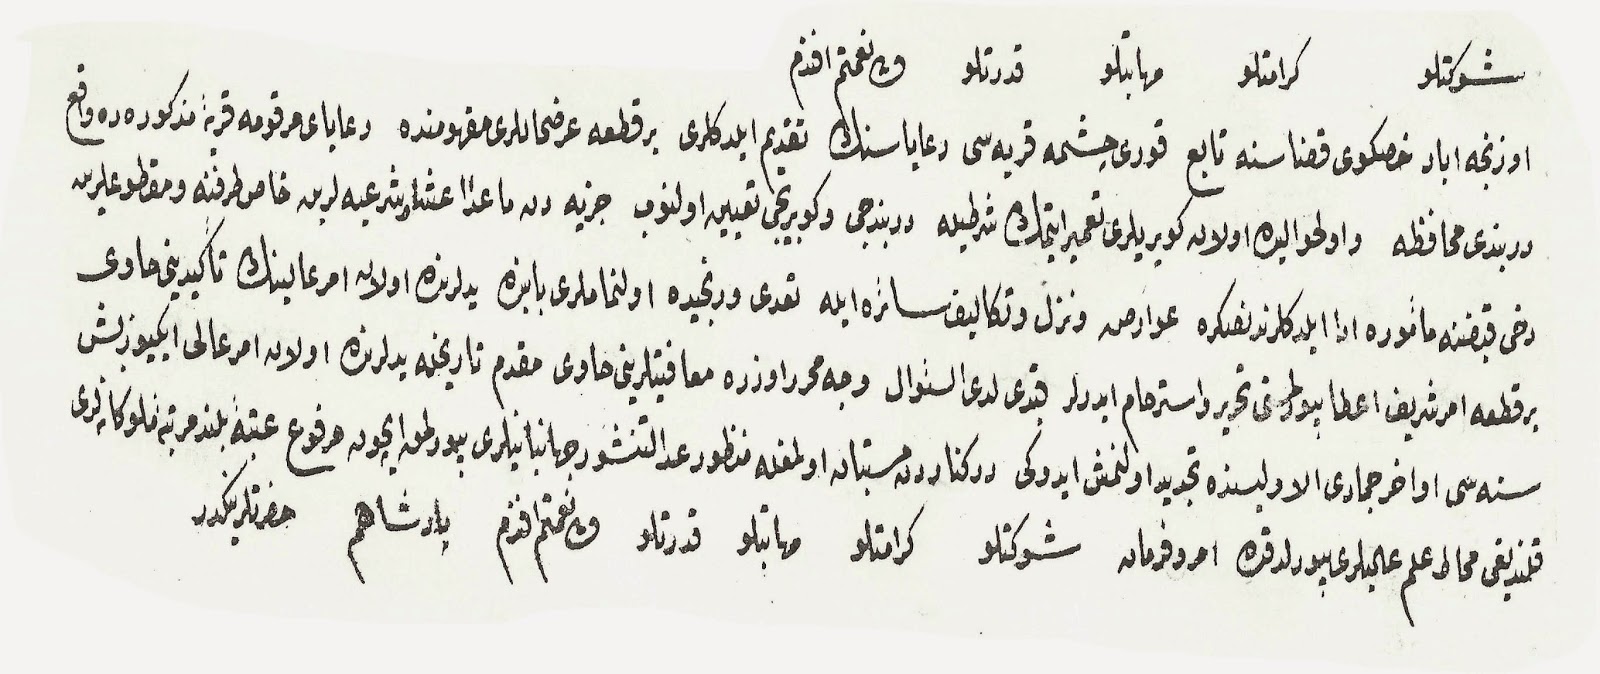 شوكتلو كرامتلو مهابتلو قدرتلو ولى نعمتم افندم
اوزنجه اباد خاصكوى قضاسنه تابع قورى چشمه قريه سى رعاياسنك تقديم ايلدكلرى بر قطعه عرضحاللرى مفهومنده رعاياى مرقومه قريۀ مذكوره ده واقع
دربندى محافظه واولحواليده اولان كوپريلرى تعمير ايتمك شرطيله دربندجى وكوپريجى تعيين اولنوب جزيه دن ماعدا عشار شرعيه لرين خاص طرفنه ومقطوعلرين
دخى قبضنه مأموره ادا ايلدكلرندنصكره عوارض ونزل وتكاليف سائره ايله تعدى ورنجيده اولنماملرى بابنده يدلرنده اولان امر عالينك تأكيدينى حاوى
بر قطعه امر شريف اعطا بيورلمسنى تحرير واسترحام ايدرلر قيدى لدى السؤال وجه محرر اوزره معافيتلرينى حاوى مقدم تاريخله يدلرنده اولان امر عالى ايكيوزبش
سنه سى اواخر جمادى الاوليسنده تجديد اولنمش ايدوكى دركناردن مستبان اولمغله منظور عدالتنشور جهانبانيلرى بيورلمق ايچون مرفوع عتبۀ بلند مرتبۀ ملوكانه لرى
قلنديغى محاط علم عاليلرى بيورلدقده امر وفرمان شوكتلو كرامتلو مهابتلو قدرتلو ولى نعمتم افندم پادشاهم حضرتلرينكدر